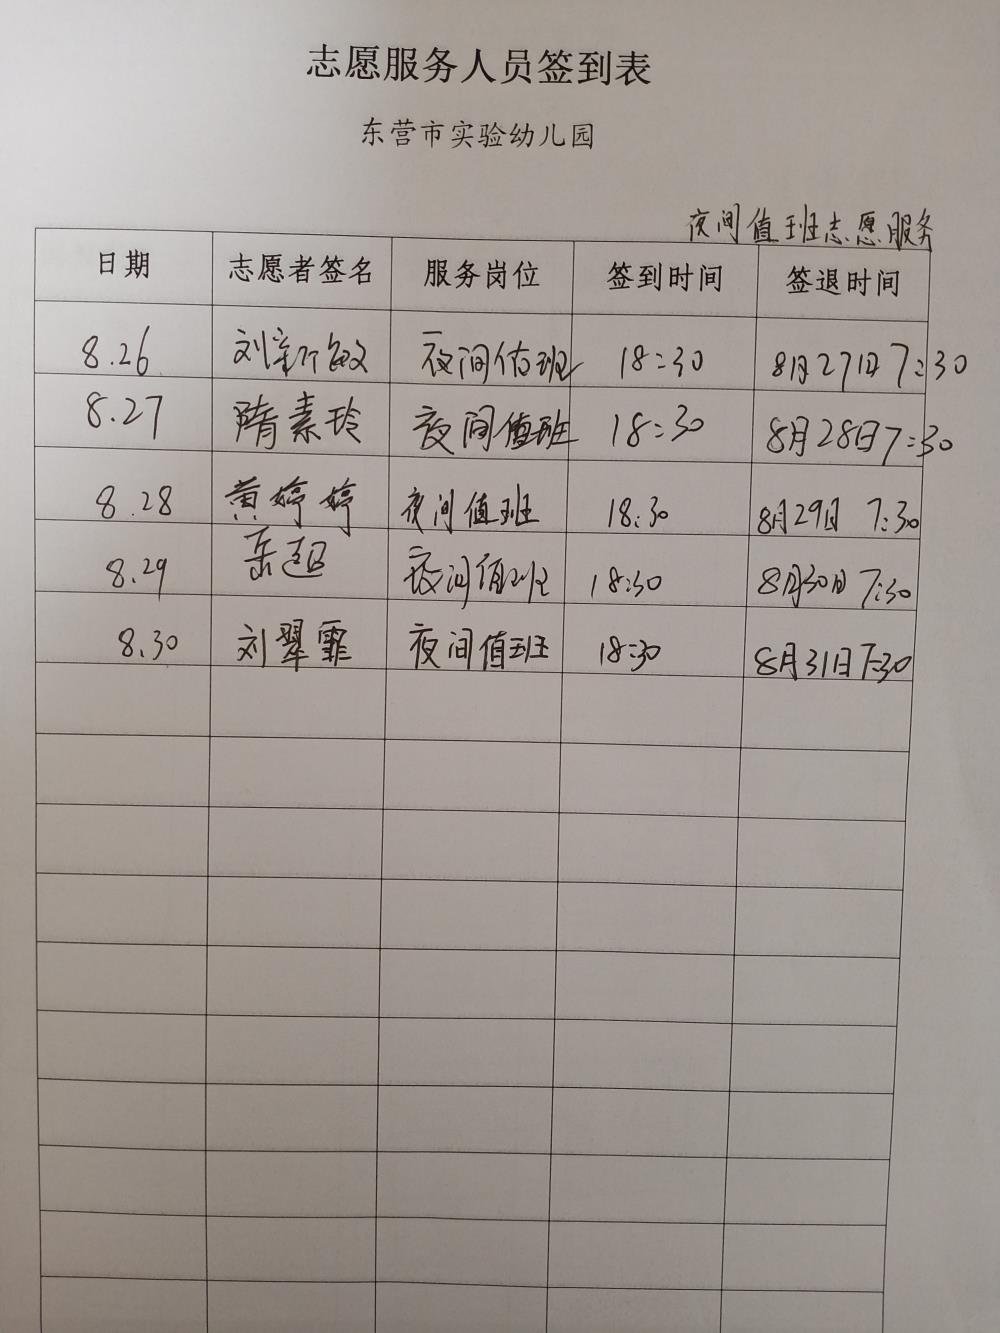 志愿服务人员签到表
东营市实验幼儿园
夜间值班志愿服务
日期 志愿者签名 服务岗位 签到时间 签退时间
8.26 刘新敏 夜间值班 18:30 8月27日 7:30
8.27 隋素玲 夜间值班 18:30 8月28日 7:30
8.28 黄婷婷 夜间值班 18:30 8月29日 7:30
8.29 岳超 夜间值班 18:30 8月30日 7:30
8.30 刘翠霏 夜间值班 18:30 8月31日 7:30